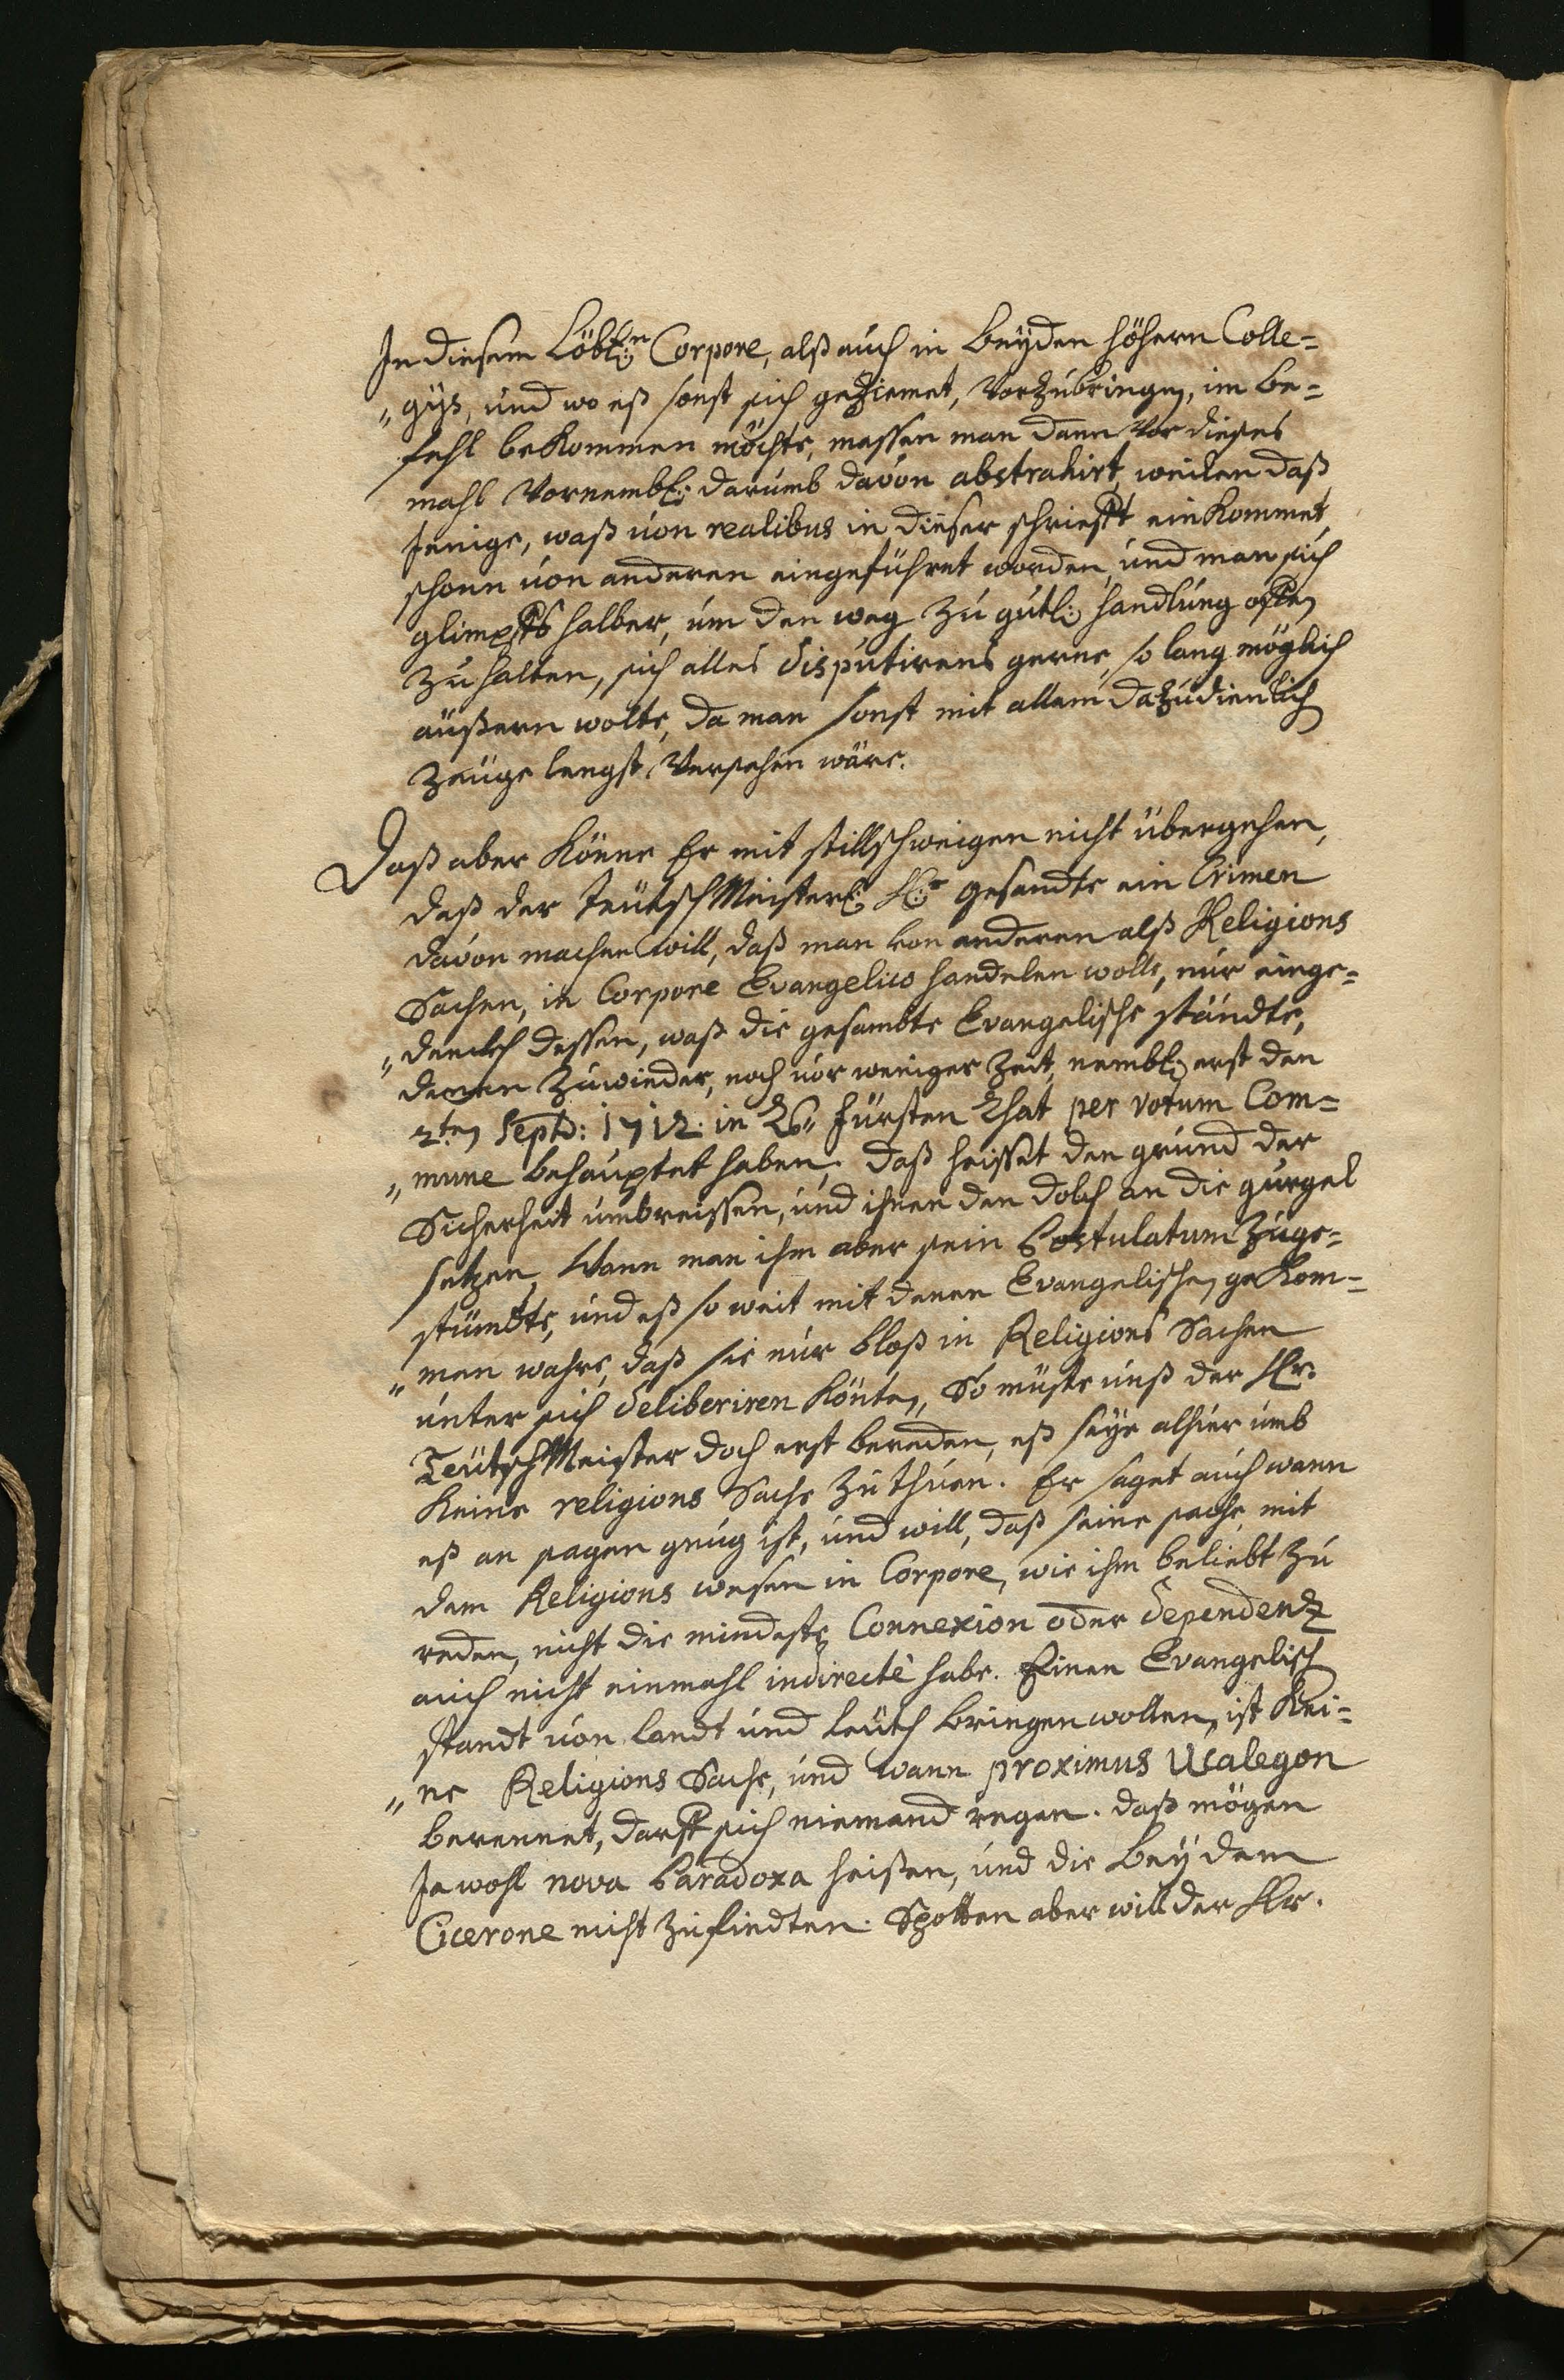 In diesem Löbl:n Corpore, alß auch in beyden höhern Colle=
„gÿs, und wo eß sonst sich geziemet, Vorzubringen, im be=
fehl bekommen möchte, massen man dann vor dieses
mahl Vornembl: darumb davon abstrahirt, weilen daß
Jenige, waß von realibus in dieser schriefft einkommet
schonn von anderen eingeführet worden, und man sich
glimpffs halber, um den weg zu gütl: handlung offen
zu halten, sich alles disputirens gerne, so lang möglich
äußern wolte, da man sonst mit allem dazudienlich
Zeuge lengst Versehen wäre.
Daß aber könne Er mit stillschweigen nicht übergehen,
daß der TeutschMeisterl: H:r Gesandte ein Crimen
davon machen will, daß man von anderen alß Religions
Sachen, in Corpore Evangelico handelen wolle, nur einge=
„denckh dessen, waß die gesambte Evangelische ständte,
denen zuwieder, noch vor weniger Zeit, nembl: erst den
2ten Septb: 1712. in Fürsten Rhat per votum Com=
„mune behauptet haben; daß heisset den grund der
Sicherheit umbreissen, und ihnen den dolch an die gurgel
setzen, Wann man ihm aber sein Postulatum Zuge=
stündte, und eß so weit mit denen Evangelischen gekom=
„men wahre, daß sie nur bloß in Religions Sachen
unter sich deliberiren könten, So müste unß der Hr.
TeutschMeister doch erst bereden, eß seye alhier umb
keine religions Sache zu thuen. Er saget auch wann
eß an sagen gnug ist, und will, daß seine sache, mit
dem Religions wesen in Corpore, wie ihm beliebt zu
reden, nicht die mindeste Connexion oder dependentz
auch nicht einmahl indirectè habe. Einen Evangelisch
standt von landt und leuth bringen wollen, ist kei=
„ne Religions Sache, und wann proximus Ucalegon
berennet, darff sich niemand regen. daß mögen
Ja wohl nova Paradoxa heißen, und die bey dem
Cicerone nicht zufindten. Spotten aber will der Hr.